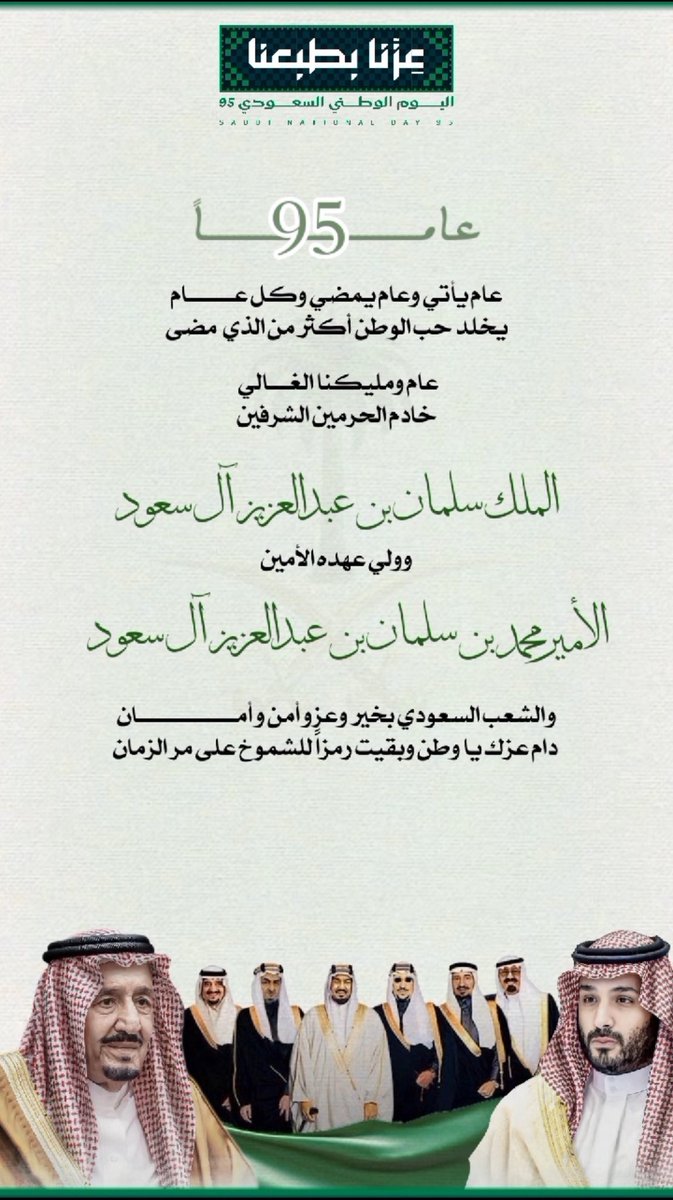 عزنا بطبعنا
اليوم الوطني السعودي 95
SAUDI NATIONAL DAY 95
95 عاماً
عام يأتي وعام يمضي وكل عام
يخلد حب الوطن أكثر من الذي مضى
عام ومليكنا الغالي
خادم الحرمين الشرفين
الملك سلمان بن عبدالعزيز آل سعود
وولي عهده الأمين
الأمير محمد بن سلمان بن عبدالعزيز آل سعود
والشعب السعودي بخير وعز وأمن وأمان
دام عزك يا وطن وبقيت رمزاً للشموخ على مر الزمان